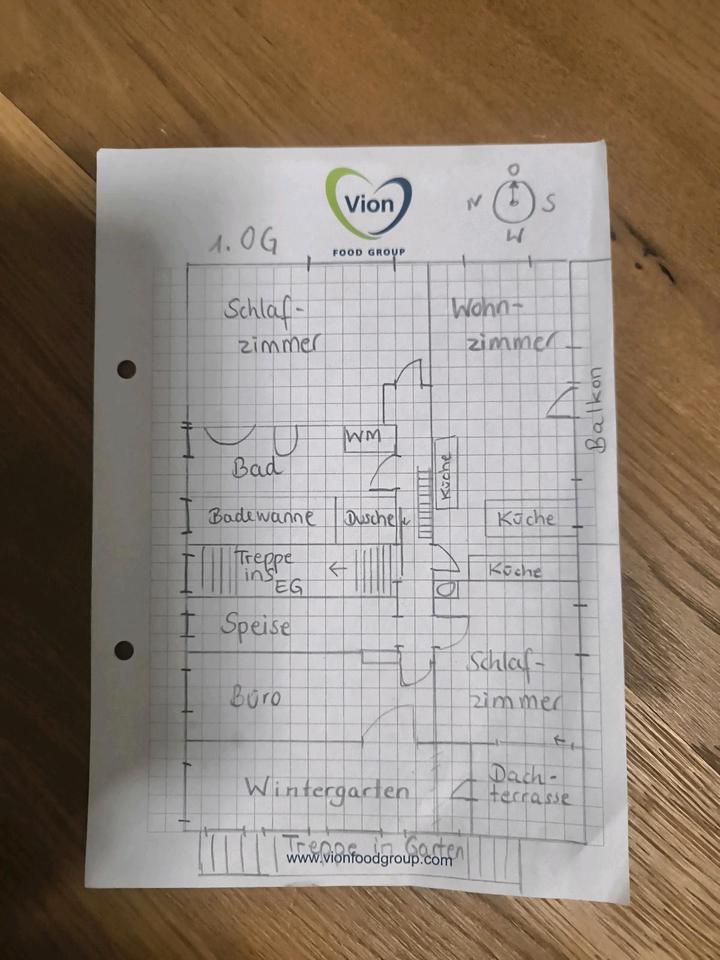 Vion
FOOD GROUP
O
N S
W
1. OG
Schlaf-
zimmer
Wohn-
zimmer
Balkon
WM
Bad
Küche
Badewanne
Dusche
Küche
Treppe
ins
EG
←
Küche
Speise
Schlaf-
zimmer
Büro
Wintergarten
Dach-
terrasse
Treppe in Garten
www.vionfoodgroup.com